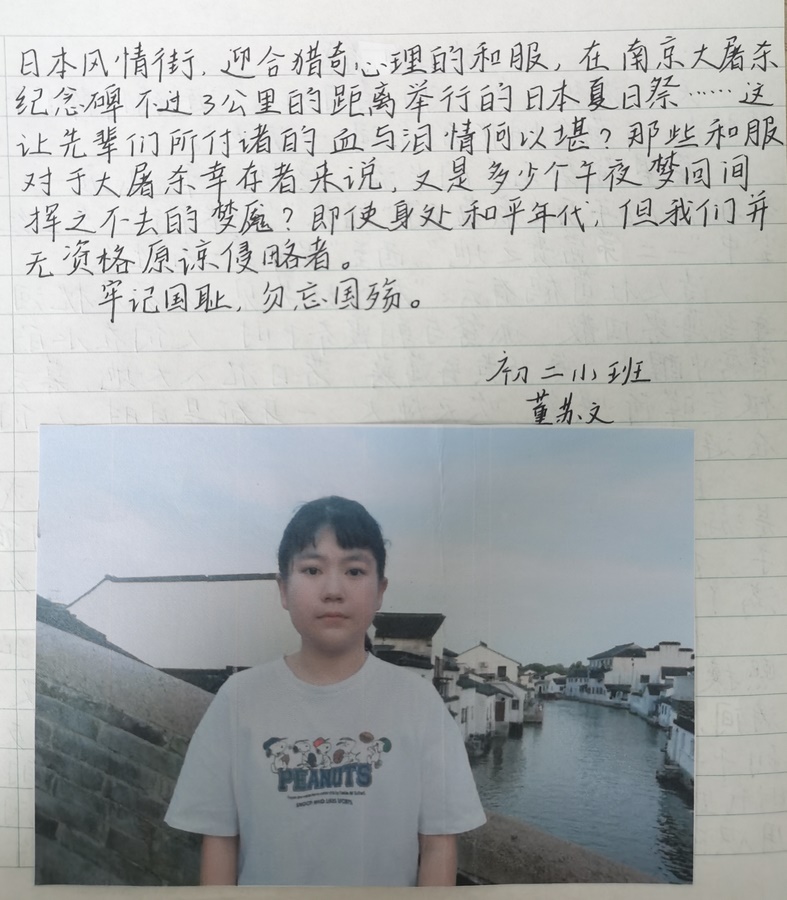 日本风情街，迎合猎奇心理的和服，在南京大屠杀
纪念碑不过3公里的距离举行的日本夏日祭……这
让先辈们所付诸的血与泪情何以堪？那些和服
对于大屠杀幸存者来说，又是多少个午夜梦回间
挥之不去的梦魇？即使身处和平年代，但我们并
无资格原谅侵略者。
牢记国耻，勿忘国殇。
初二小班
董苏文
PEANUTS